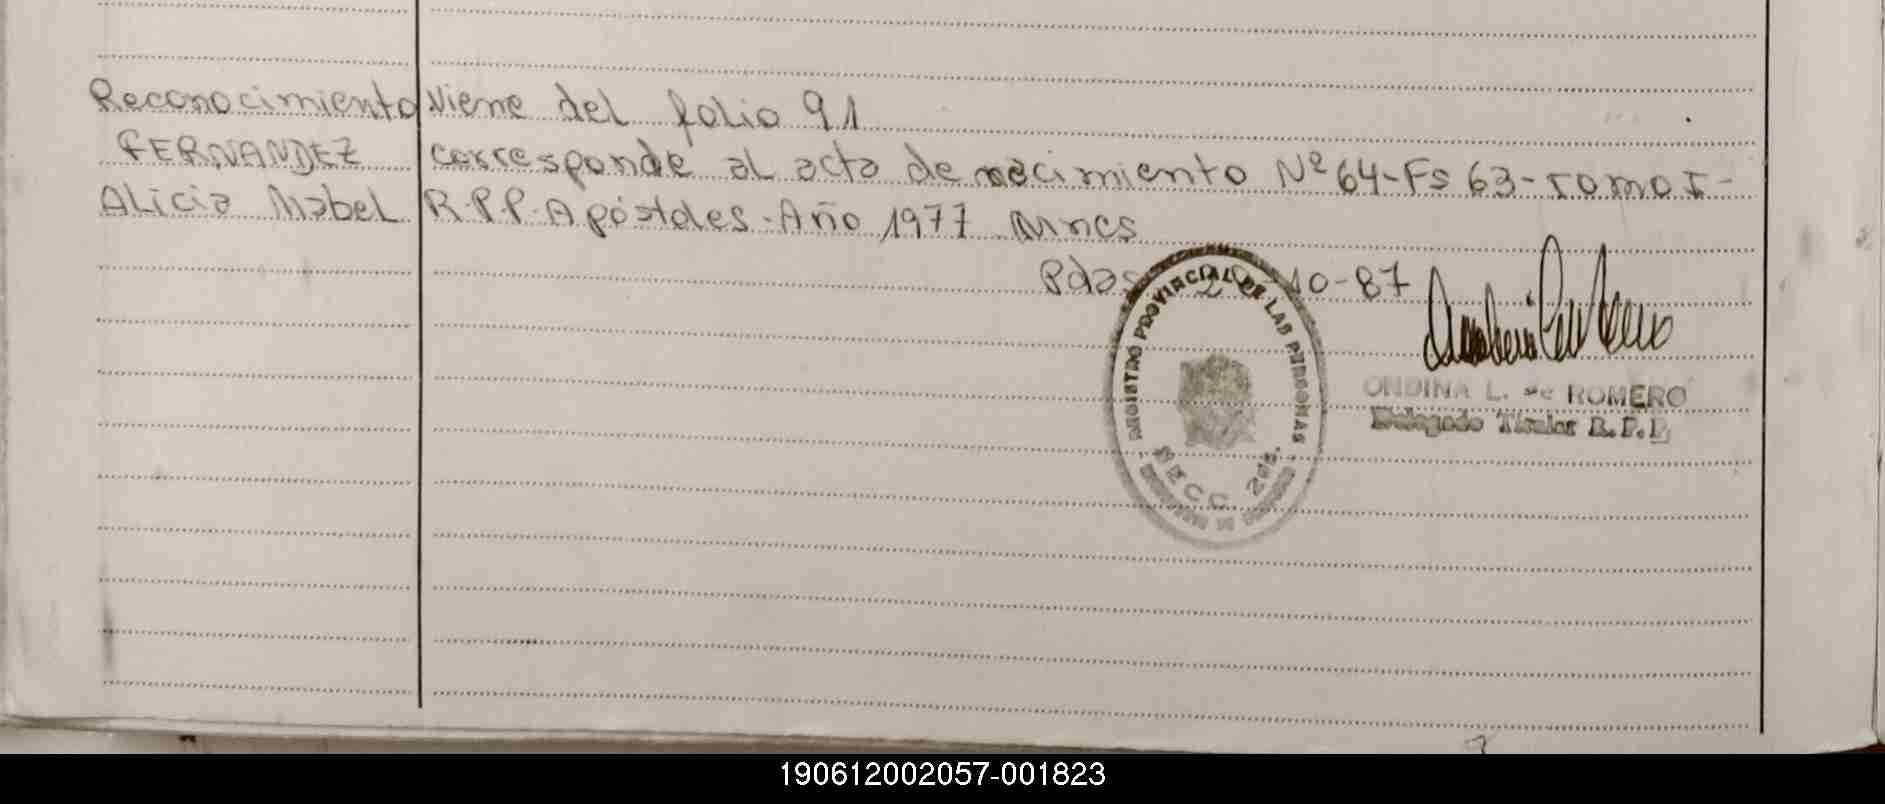 Reconocimiento Viene del folio 91
FERNANDEZ corresponde al acta de nacimiento Nº 64-Fs 63-Tomo I-
Alicia Mabel R.P.P. Apóstoles-Año 1977 Mnes
Pdas 10-87
REGISTRO PROVINCIAL DE LAS PERSONAS
SECC. 2da.
ONDINA L. de ROMERO
Delegado Titular R.P.P.
190612002057-001823